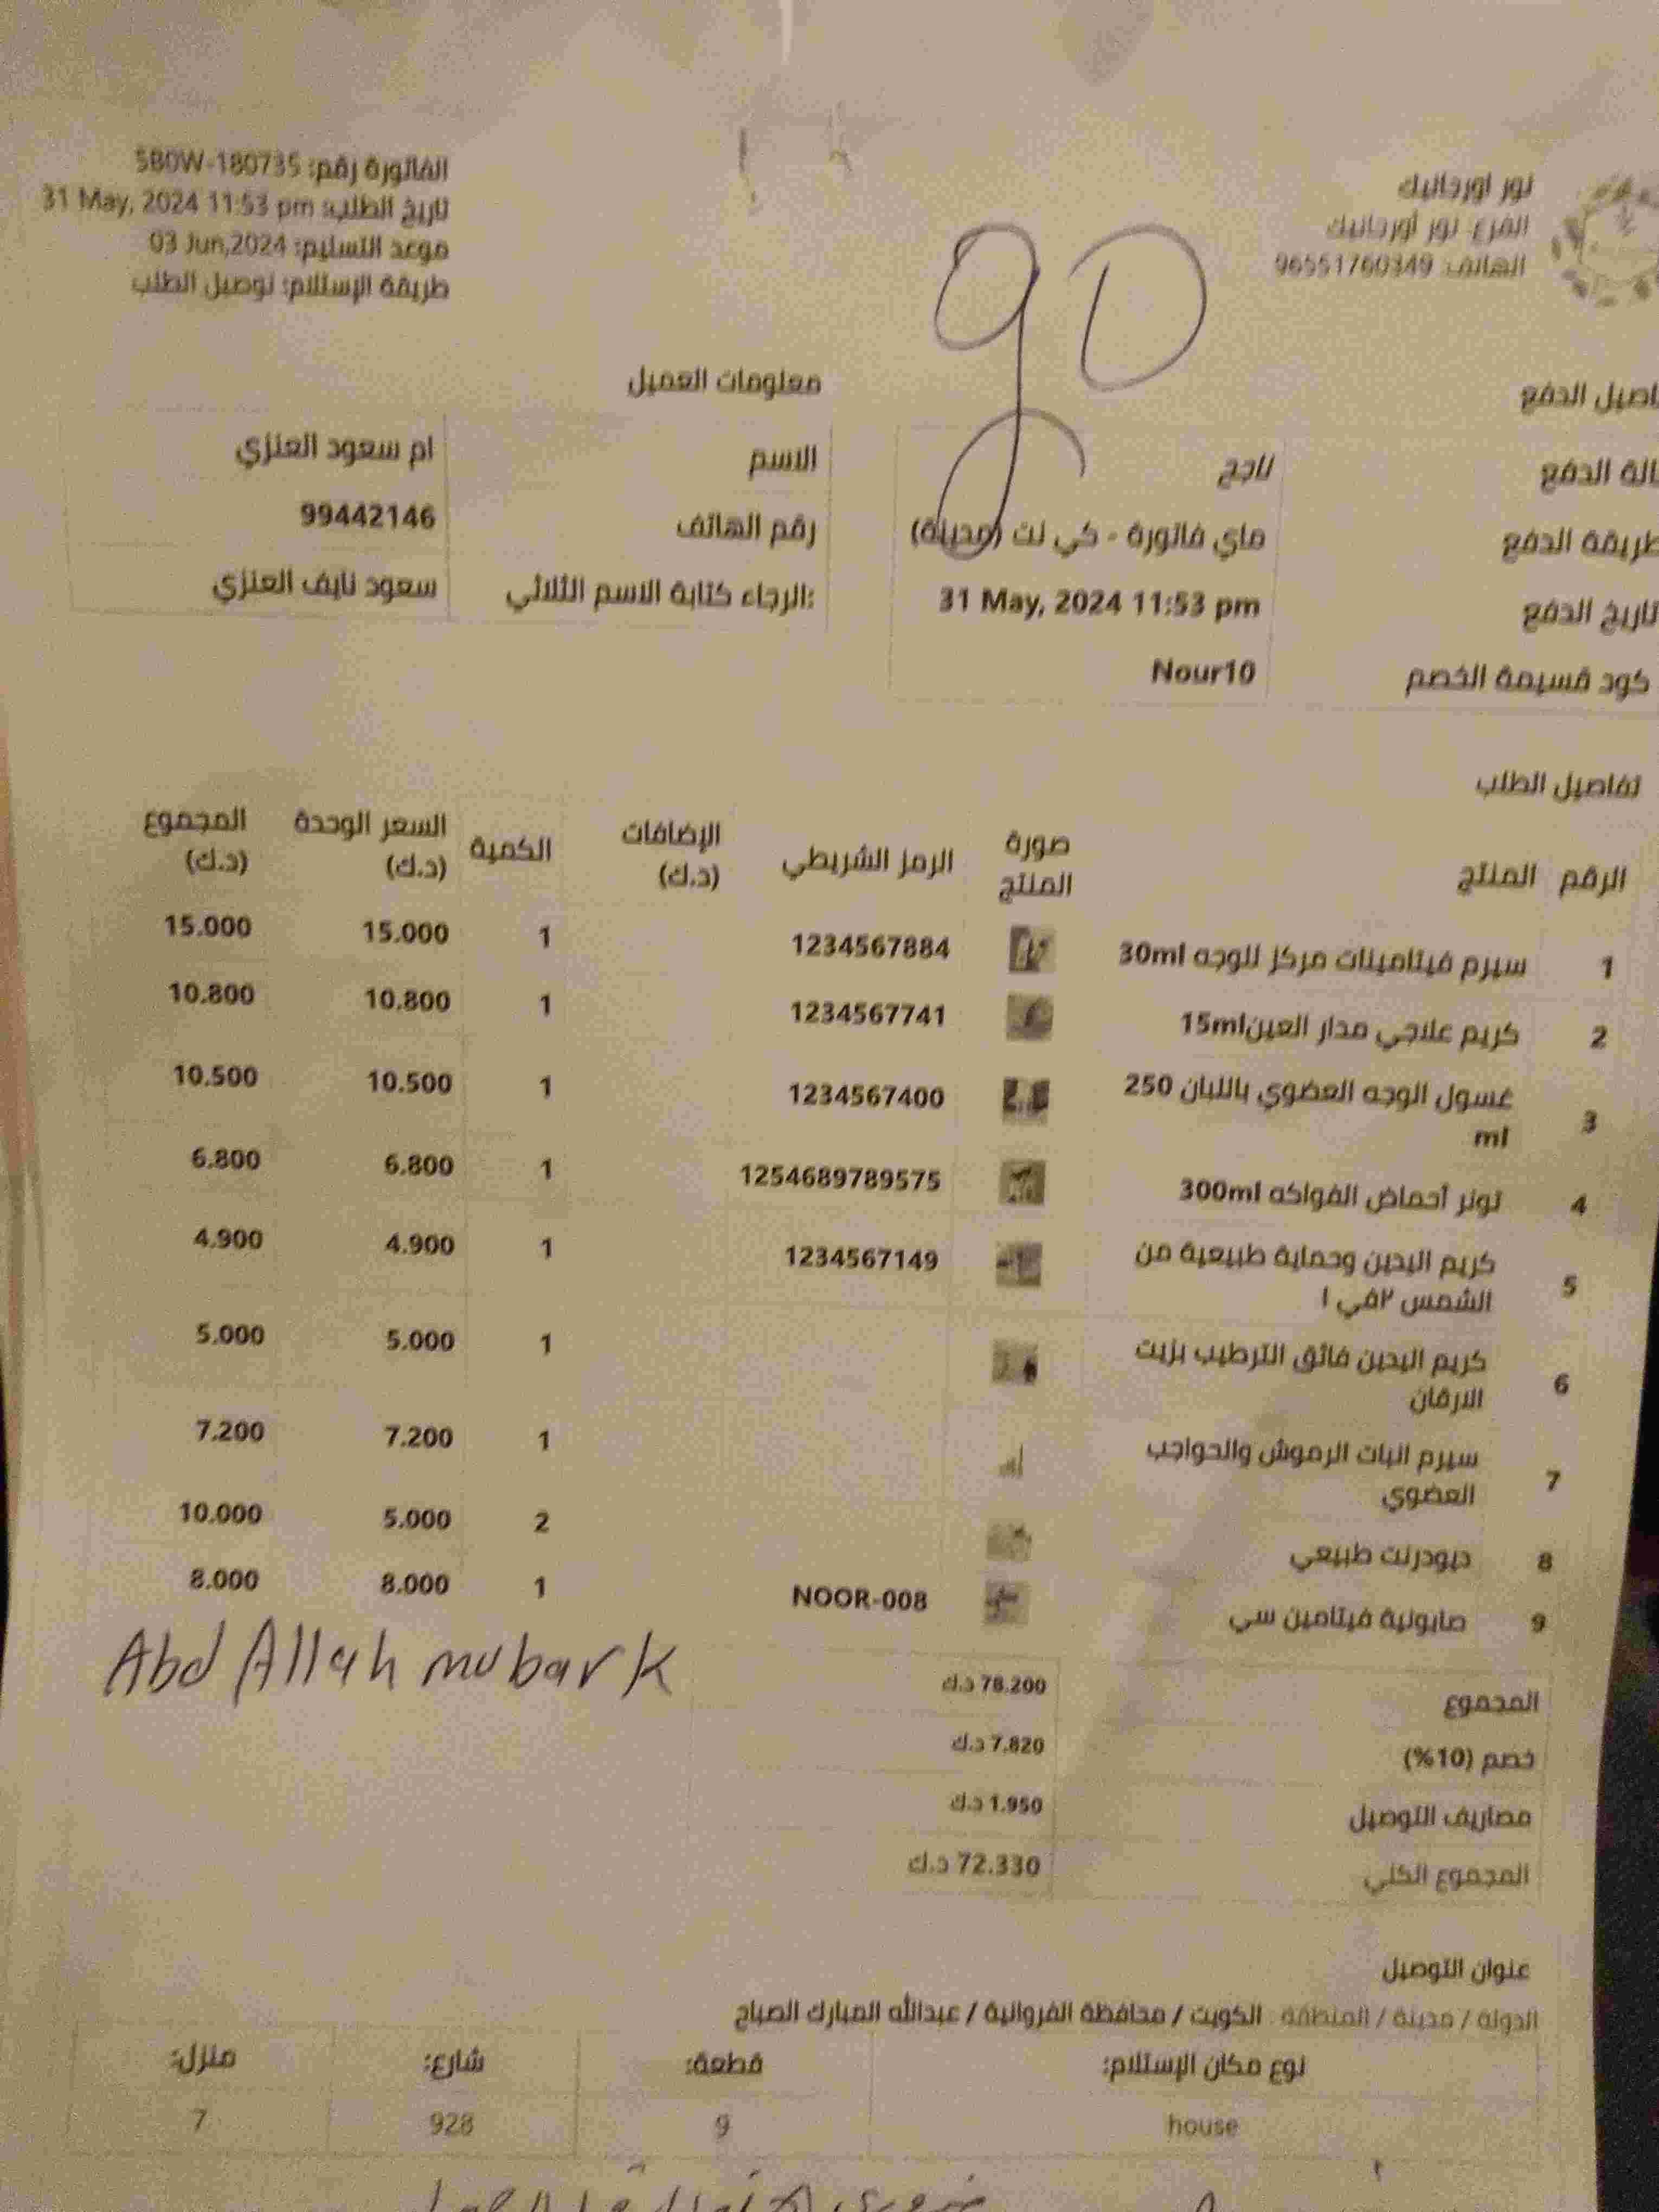 نور اورجانيك
الفرع: نور أورجانيك
الهاتف: 96551760349
الفاتورة رقم: SBOW-180735
تاريخ الطلب: 31 May, 2024 11:53 pm
موعد التسليم: 03 Jun,2024
طريقة الإستلام: توصيل الطلب
90
اصيل الدفع
الة الدفع ناجح
طريقة الدفع ماي فاتورة - كي نت (مدينة)
تاريخ الدفع 31 May, 2024 11:53 pm
كود قسيمة الخصم Nour10
معلومات العميل
الاسم ام سعود العنزي
رقم الهاتف 99442146
الرجاء كتابة الاسم الثلاثي: سعود نايف العنزي
تفاصيل الطلب
الرقم المنتج صورة المنتج الرمز الشريطي الإضافات (د.ك) الكمية السعر الوحدة (د.ك) المجموع (د.ك)
1 سيرم فيتامينات مركز للوجه 30ml 1234567884 1 15.000 15.000
2 كريم علاجي مدار العين15ml 1234567741 1 10.800 10.800
3 غسول الوجه العضوي باللبان 250 1234567400 1 10.500 10.500
ml
4 تونر أحماض الفواكه 300ml 1254689789575 1 6.800 6.800
5 كريم اليدين وحماية طبيعية من 1234567149 1 4.900 4.900
الشمس ٢في ١
6 كريم اليدين فائق الترطيب بزيت 1 5.000 5.000
الارقان
7 سيرم انبات الرموش والحواجب 1 7.200 7.200
العضوي
8 ديودرنت طبيعي 2 5.000 10.000
9 صابونية فيتامين سي NOOR-008 1 8.000 8.000
Abd Allah mubark
المجموع 78.200 د.ك
خصم (10%) 7.820 د.ك
مصاريف التوصيل 1.950 د.ك
المجموع الكلي 72.330 د.ك
عنوان التوصيل
الدولة / مدينة / المنطقة : الكويت / محافظة الفروانية / عبدالله المبارك الصباح
نوع مكان الإستلام: قطعة: شارع: منزل:
house 9 928 7